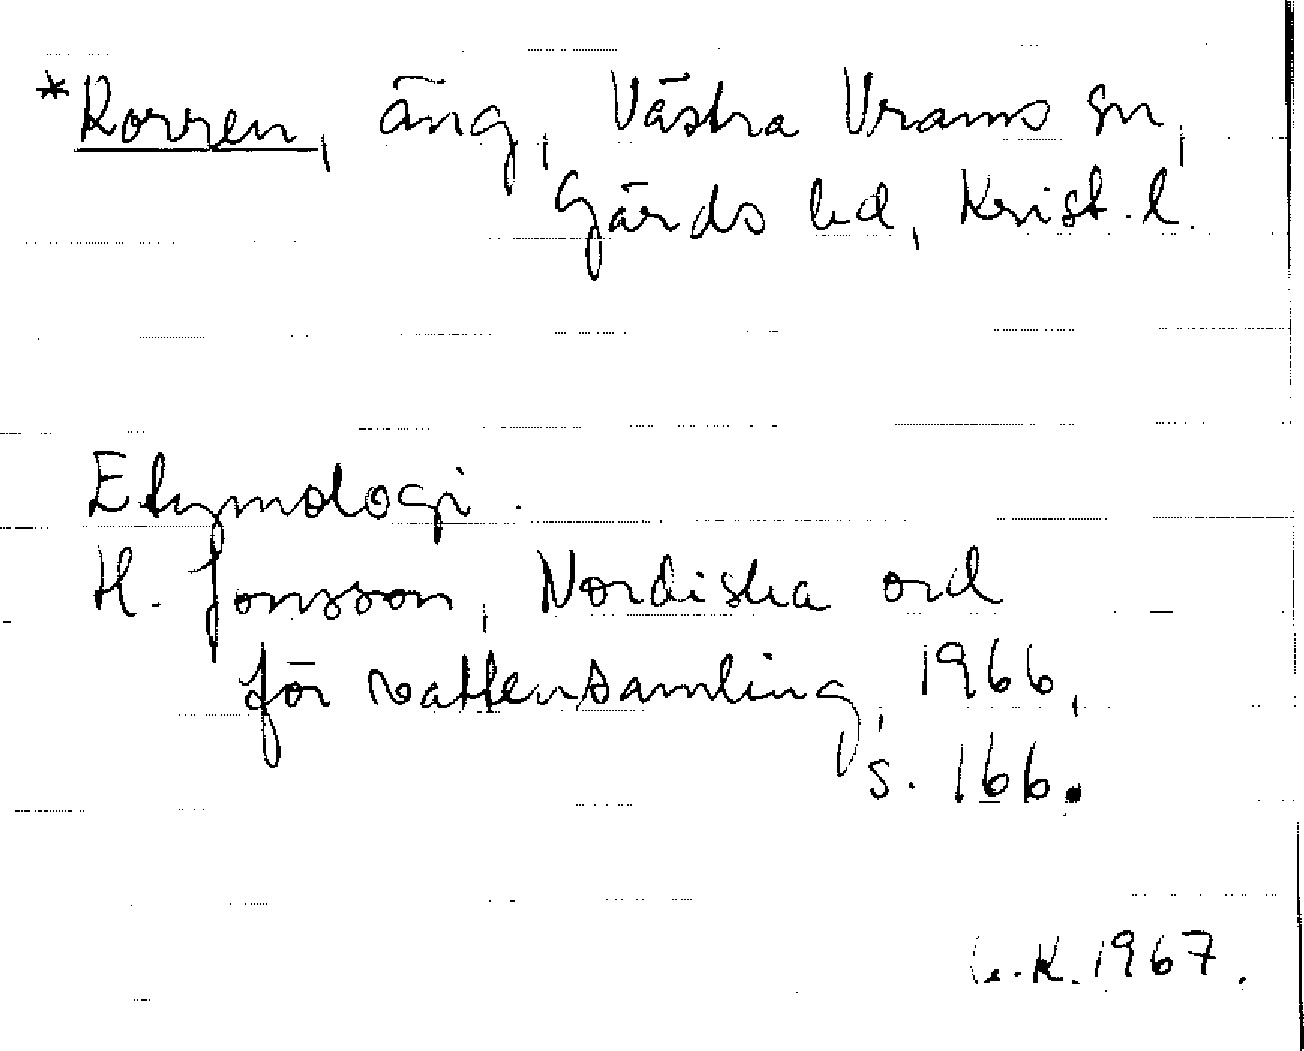 *Korren, äng, Västra Vrams sn,
Gärds hd, Krist. l.
Etymologi.
H. Jonsson, Nordiska ord
för vattensamling, 1966,
s. 166.
K. 1967.